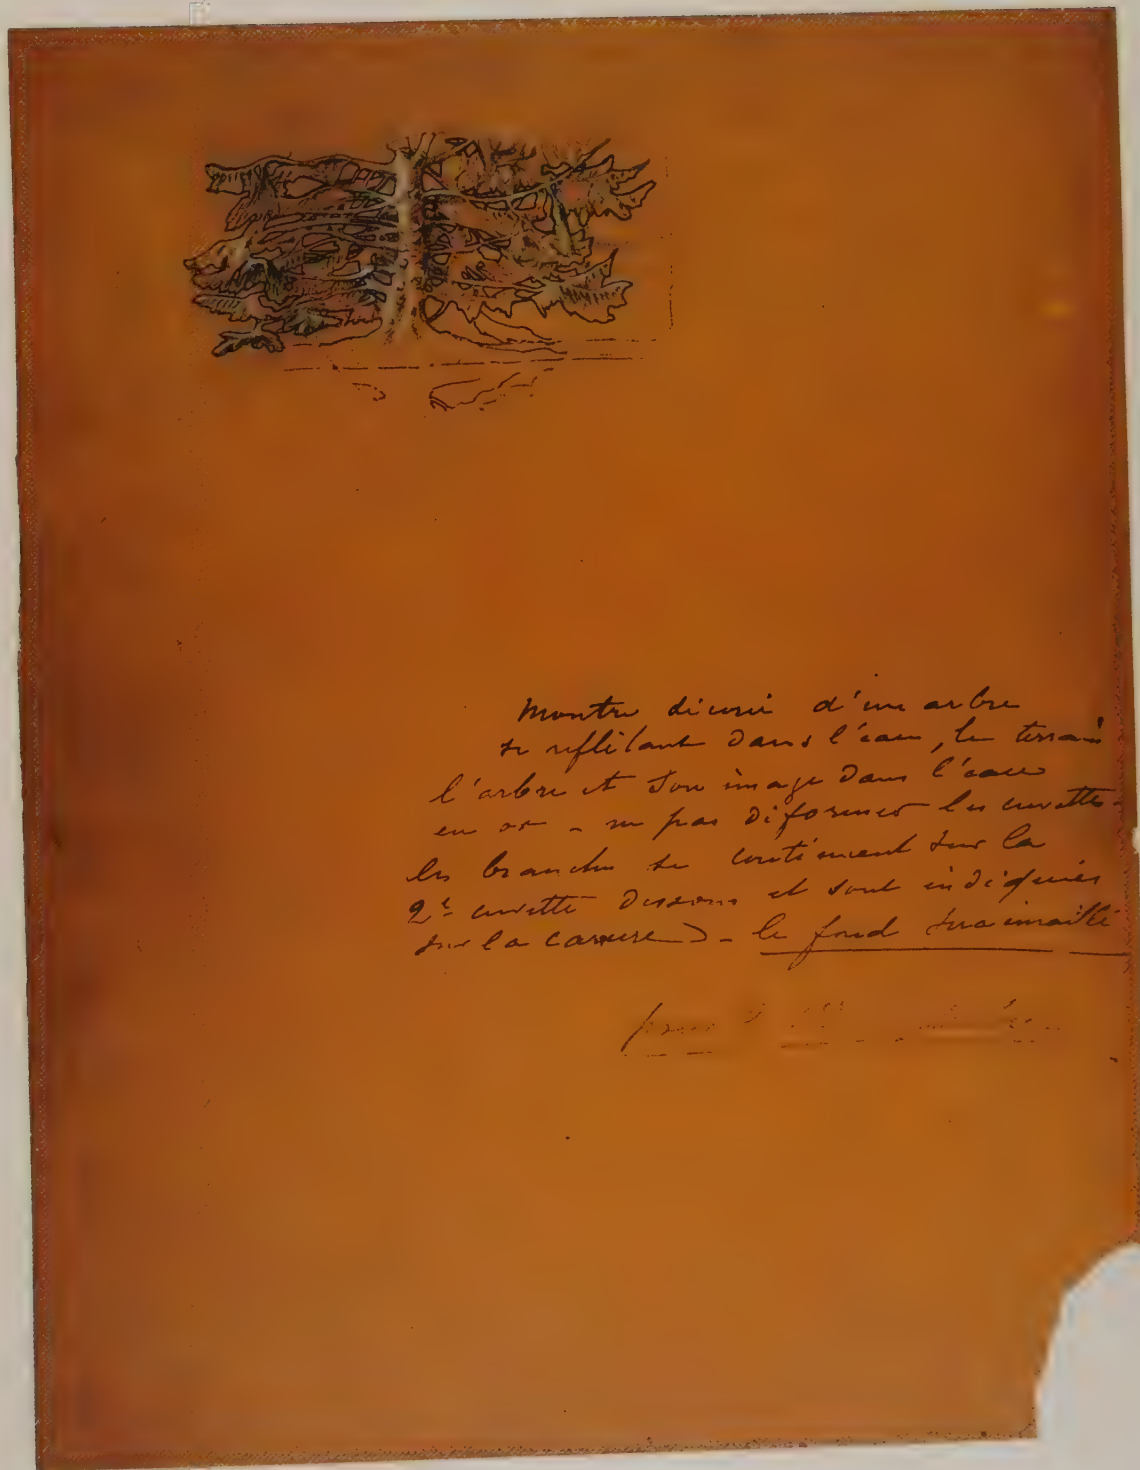 Montre décoré d'un arbre
se reflétant dans l'eau, le terrain
l'arbre et son image dans l'eau
en or - ne pas déformer les cuvettes
les branches se continuent sur la
2e cuvette dessous et sont indiquées
sur la carrure - le fond sera émaillé
pour